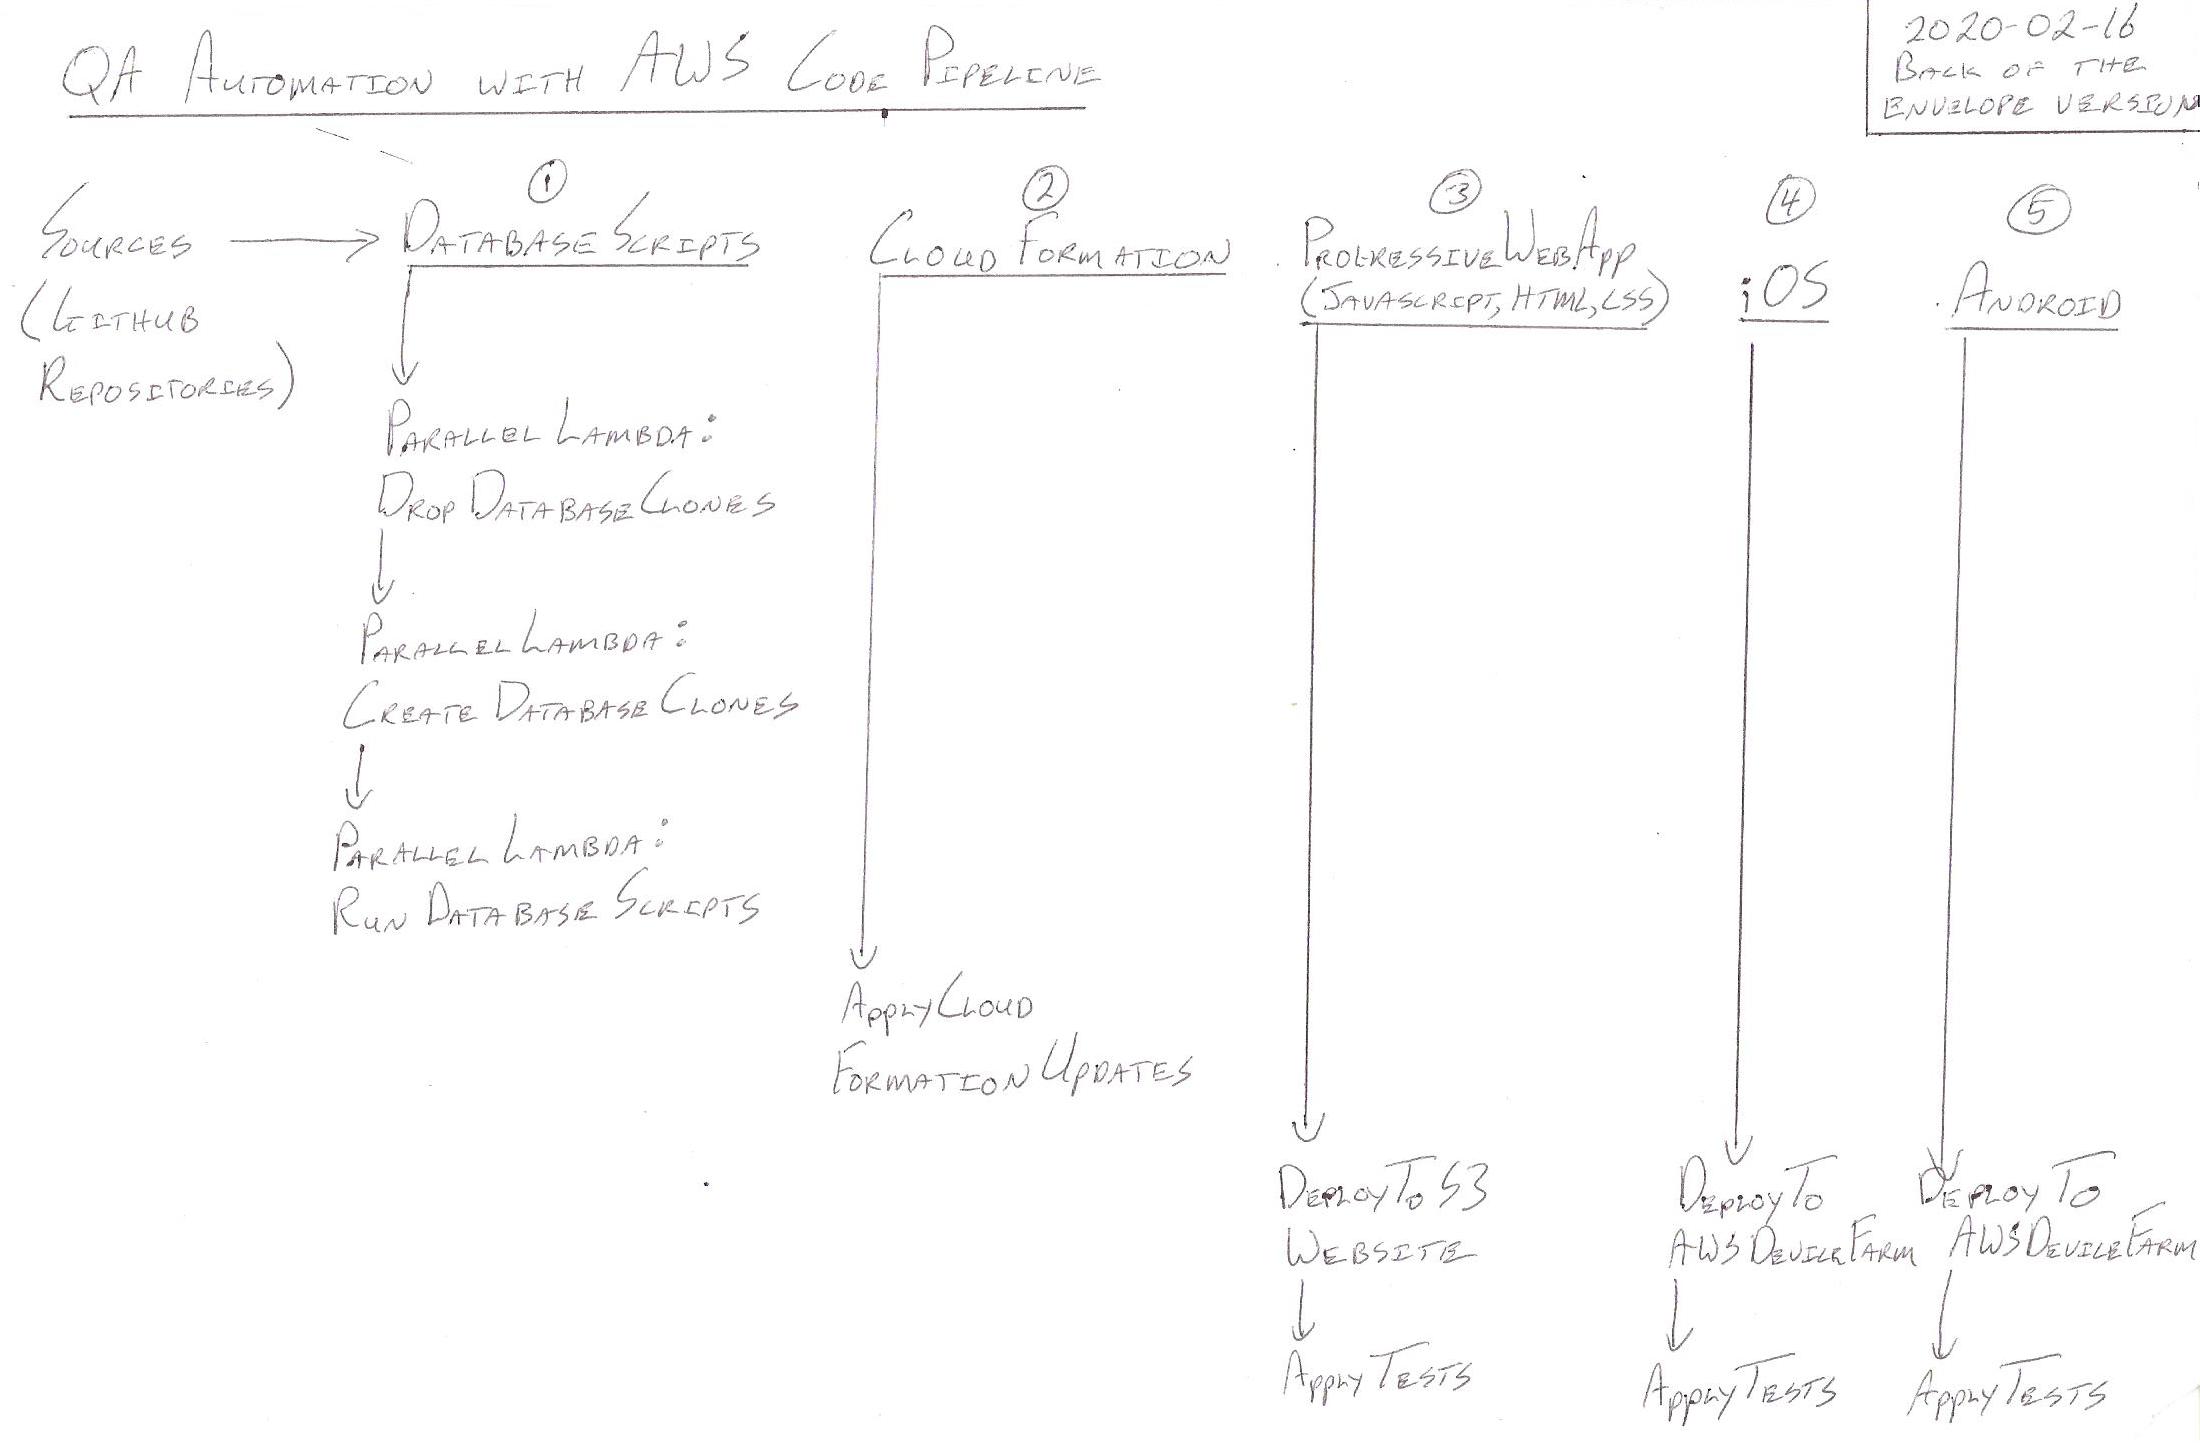 QA Automation with AWS Code Pipeline
2020-02-16
Back of the
Envelope Version
Sources
(Github
Repositories)
1
Database Scripts
Parallel Lambda:
Drop Database Clones
Parallel Lambda:
Create Database Clones
Parallel Lambda:
Run Database Scripts
2
Cloud Formation
Apply Cloud
Formation Updates
3
Progressive Web App
(Javascript, HTML, CSS)
Deploy To S3
Website
Apply Tests
4
iOS
Deploy To
AWS Device Farm
Apply Tests
5
Android
Deploy To
AWS Device Farm
Apply Tests